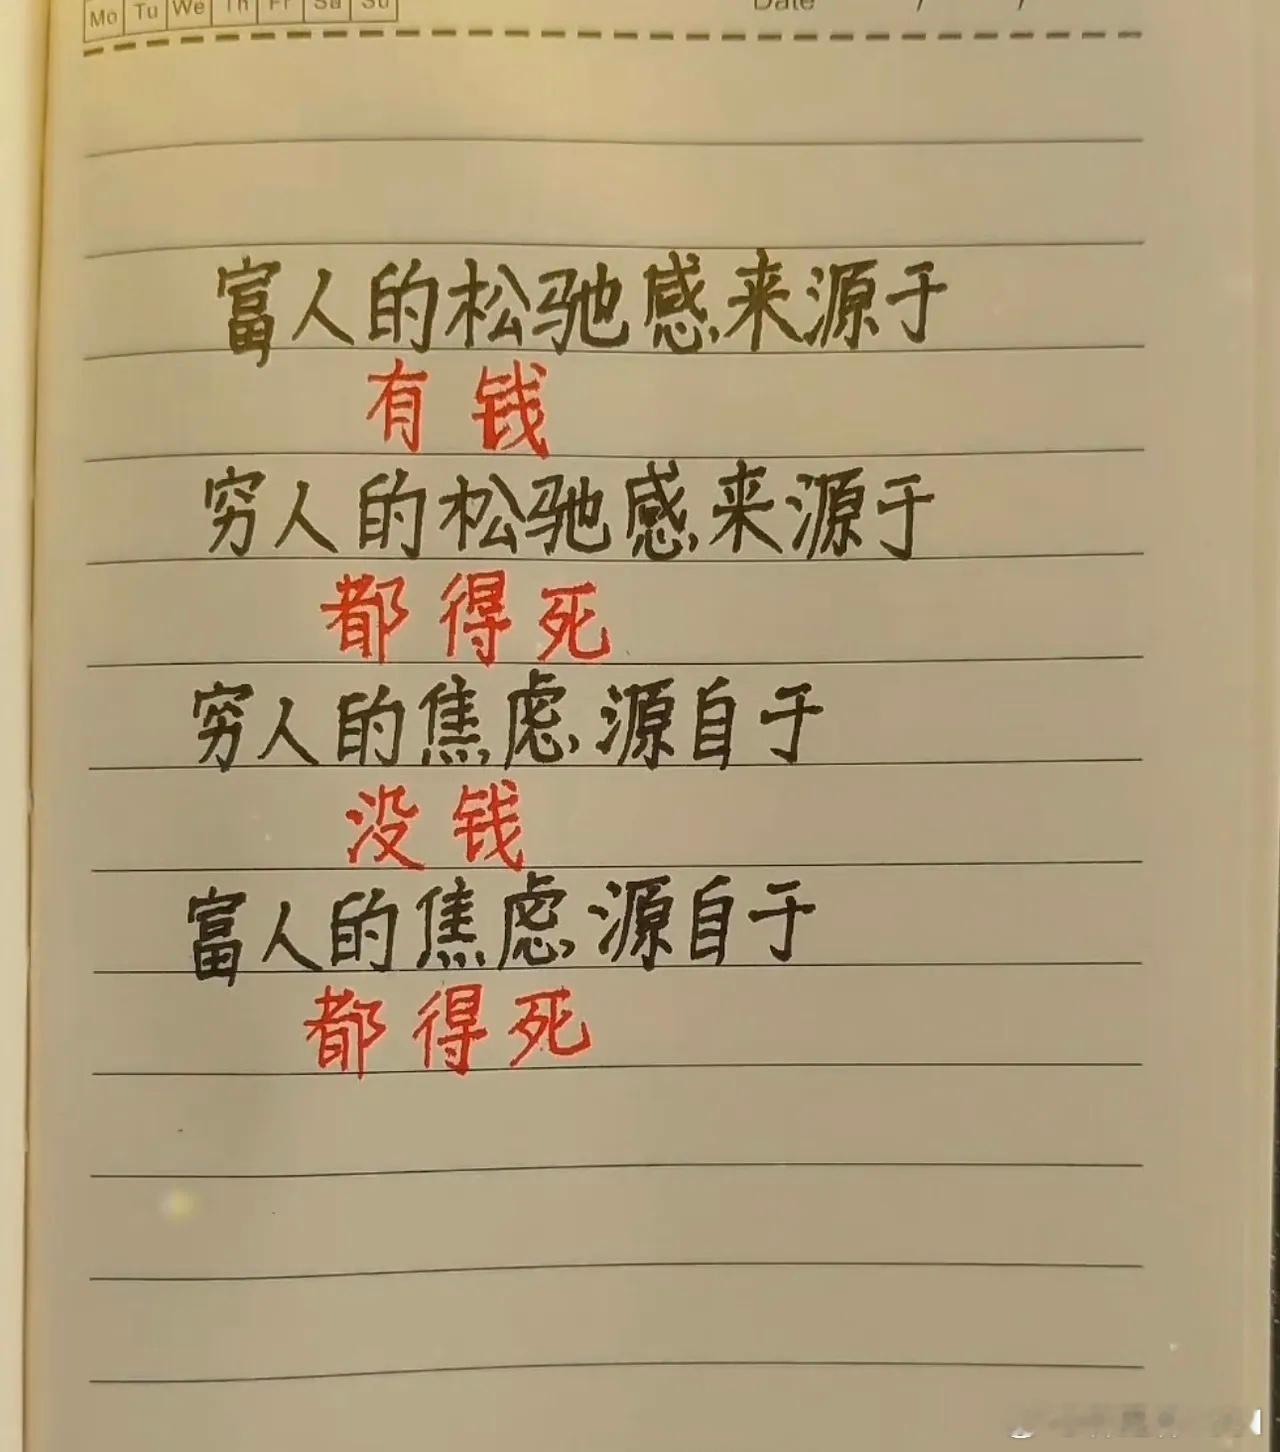 Mo Tu We Th Fr Sa Su
Date / /
富人的松驰感来源于
有钱
穷人的松驰感来源于
都得死
穷人的焦虑源自于
没钱
富人的焦虑源自于
都得死